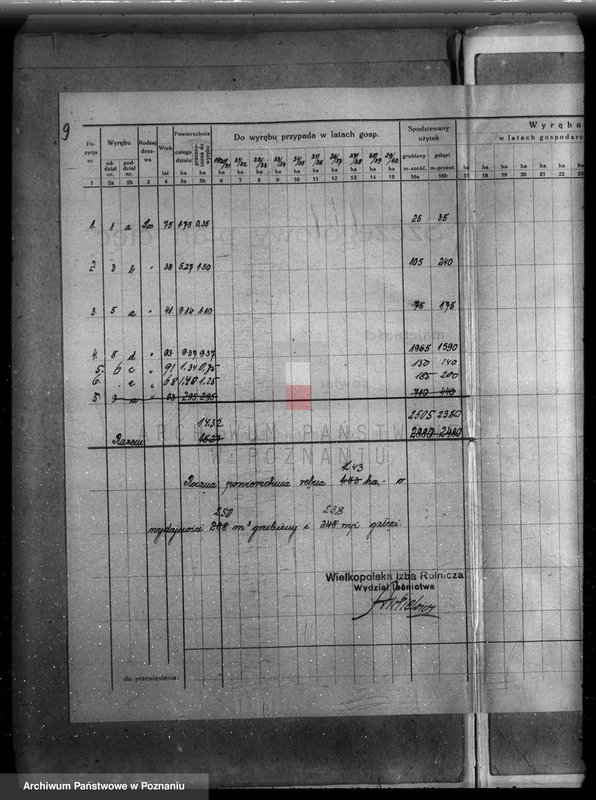 9
Po-zycja nr.	Wyrębu	Rodzaj drze-wa	Wiek	Powierzchnia	Do wyrębu przypada w latach gosp.	Spodziewany użytek	Wyręba
od-dział nr.	pod-dział nr.	całego działu	przezna-czona do wyrębu	1930/31	31/32	32/33	33/34	34/35	35/36	36/37	37/38	38/39	39/40	grubizny	gałęzi	w latach gospodarc
lat	ha	ha	ha	ha	ha	ha	ha	ha	ha	ha	ha	ha	m-sześć.	m-przest.	ha	ha	ha	ha	ha	ha
1	2a	2b	3	4	5a	5b	6	7	8	9	10	11	12	13	14	15	16a	16b	17	18	19	20	21	22	23
1.	1	a	So.	75	1.75	0.35	25	35
2	3	b	"	38	5.27	1.50	105	240
3.	5	a	"	41	9.14	1.10	75	175
4.	8	d	"	93	9.37	9.37	1965	1590
5.	6	c	"	91	1.34	0.75	150	140
6.	c	"	68	1.40	1.25	185	200
5.	9	a	"	93	2.95	2.95	710	440
14.32	2505	2380
Razem	15.27	2880	2480
1.43
Roczna powierzchnia rębna 1.53 ha, - o
250	238
wydajności 288 m³ grubizny i 248 mp gałęzi
Wielkopolska Izba Rolnicza
Wydział Leśnictwa
do przeniesienia:
ARCHIWUM PAŃSTWOWE
W POZNANIU
Archiwum Państwowe w Poznaniu